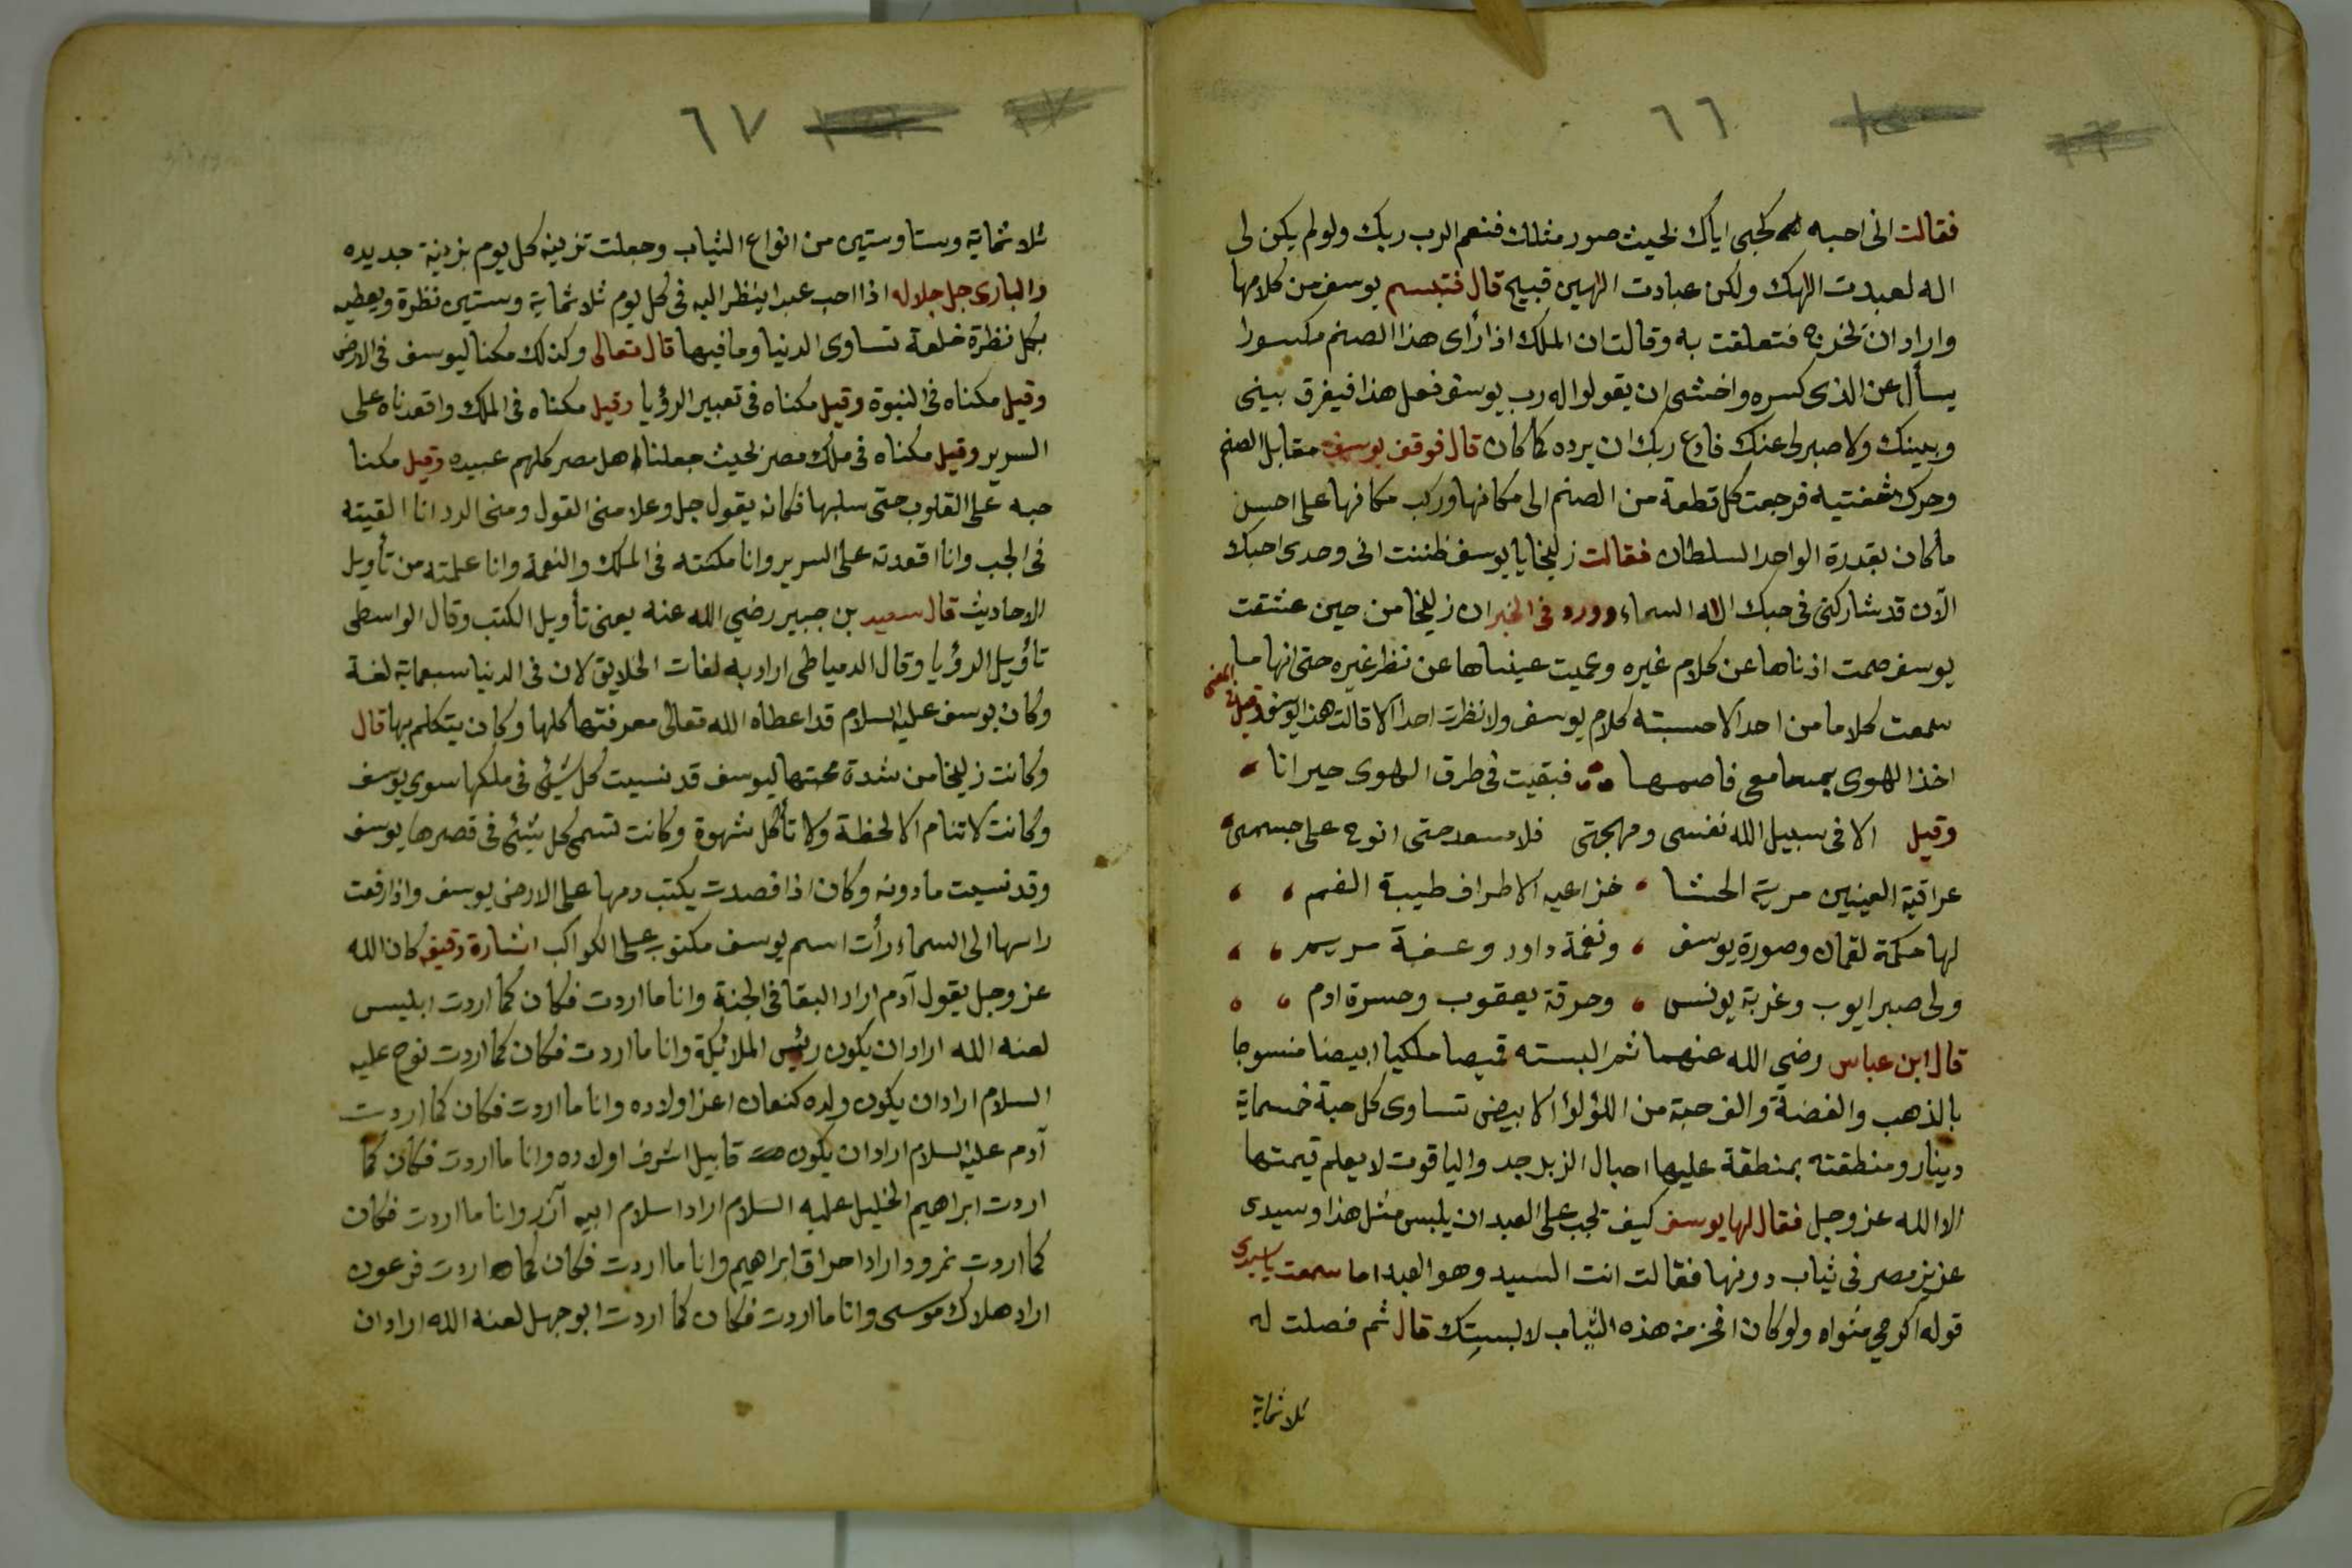 ٦٦
فقالت انى احبه كحبى اياك بحيث صور مثلك فنعم الرب ربك ولو لم يكن لى
اله لعبدت الهك ولكن عبادت الهين قبيح قال فتبسم يوسف من كلامها
واراد ان يخرج فتعلقت به وقالت ان الملك اذا رأى هذا الصنم مكسورا
يسأل عن الذى كسره واخشى ان يقولوا له رب يوسف فعل هذا فيفرق بينى
وبينك ولا صبر لى عنك فادع ربك ان يرده كما كان قال فوقف يوسف مقابل الصنم
وحرك شفتيه فرجعت كل قطعة من الصنم الى مكانها وركب مكانها على احسن
ما كان بقدرة الواحد السلطان فقالت زليخا يا يوسف ظننت انى وحدى احبك
الآن قد شاركنى فى حبك اله السماء وورد فى الخبر ان زليخا من حين عشقت
يوسف صمت اذناها عن كلام غيره وعميت عيناها عن نظر غيره حتى انها ما
سمعت كلاما من احد الا حسبته كلام يوسف ولا نظرت احدا الا قالت هذا يوسف قيل فى المعنى
اخذ الهوى بمسامعى فاصمها فبقيت فى طرق الهوى حيرانا
وقيل الا فى سبيل الله نفسى ومهجتى فلا مسعد حتى انوح على جسمى
عراقية العينين مرية الحشا خزاعيه الاطراف طيبة الفم
لها حكمة لقمان وصورة يوسف ونغمة داود وعفة مريم
ولى صبر ايوب وغربة يونس وحرقة يعقوب وحسرة ادم
قال ابن عباس رضي الله عنهما ثم البسته قميصا ملكيا ابيضا منسوجا
بالذهب والفضة والف حبة من اللؤلؤ الابيض تساوى كل حبة خمسماية
دينار ومنطقته بمنطقة عليها احبال الزبرجد والياقوت لا يعلم قيمتها
الا الله عز وجل فقال لها يوسف كيف يجب على العبد ان يلبس مثل هذا وسيدى
عزيز مصر فى ثياب دونها فقالت انت السيد وهو العبد اما سمعت يا سيدى
قوله اكرمي مثواه ولو كان افخر من هذه الثياب لالبستك قال ثم فصلت له
ثلاثماية
٦٧
ثلاثماية وستا وستين من انواع الثياب وجعلت تزينه كل يوم بزينة جديده
والبارى جل جلاله اذا احب عبدا ينظر اليه فى كل يوم ثلاثماية وستين نظرة ويعطيه
بكل نظرة خلعة تساوى الدنيا وما فيها قال تعالى وكذلك مكنا ليوسف فى الارض
وقيل مكناه فى النبوة وقيل مكناه فى تعبير الرؤيا وقيل مكناه فى الملك واقعدناه على
السرير وقيل مكناه فى ملك مصر بحيث جعلنا اهل مصر كلهم عبيده وقيل مكنا
حبه على القلوب حتى سلبها فكانه يقول جل وعلا منى القول ومنى الرد انا القيته
فى الجب وانا اقعدته على السرير وانا مكنته فى الملك والنعمة وانا علمته من تأويل
الاحاديث قال سعيد بن جبير رضي الله عنه يعنى تأويل الكتب وقال الواسطى
تأويل الرؤيا وقال الدمياطى اراد به لغات الخلايق لان فى الدنيا سبعماية لغة
وكان يوسف عليه السلام قد اعطاه الله تعالى معرفتها كلها وكان يتكلم بها قال
وكانت زليخا من شدة محبتها ليوسف قد نسيت كل شيئ فى ملكها سوى يوسف
وكانت لا تنام الا لحظة ولا تأكل شهوة وكانت تسمى كل شيئ فى قصرها يوسف
وقد نسيت ما دونه وكان اذا فصدت يكتب دمها على الارض يوسف واذا رفعت
راسها الى السماء رأت اسم يوسف مكتوب على الكواكب اشارة دقيقه كان الله
عز وجل يقول آدم اراد البقا فى الجنة وانا ما اردت فكان كما اردت ابليس
لعنه الله اراد ان يكون رئيس الملائكة وانا ما اردت فكان كما اردت نوح عليه
السلام اراد ان يكون ولده كنعان اعز اولاده وانا ما اردت فكان كما اردت
آدم عليه السلام اراد ان يكون قابيل اشرف اولاده وانا ما اردت فكان كما
اردت ابراهيم الخليل عليه السلام اراد اسلام ابيه آزر وانا ما اردت فكان
كما اردت نمرود اراد احراق ابراهيم وانا ما اردت فكان كما اردت فرعون
اراد هلاك موسى وانا ما اردت فكان كما اردت ابو جهل لعنه الله اراد ان